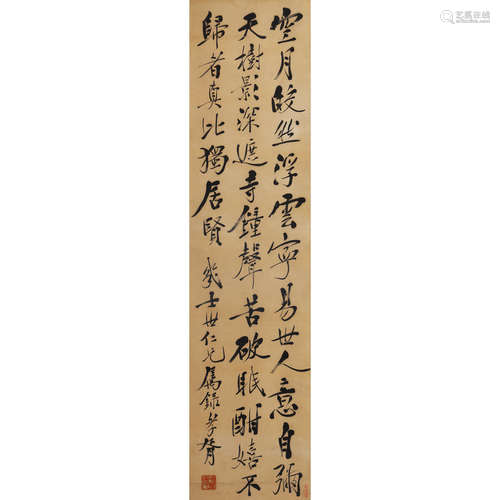 雪月皎然浮雲寧易世人意自彌
天樹影深遮寺鐘聲苦破眠酣嬉不
歸者真比獨居賢 幾士世仁兄屬錄孝胥